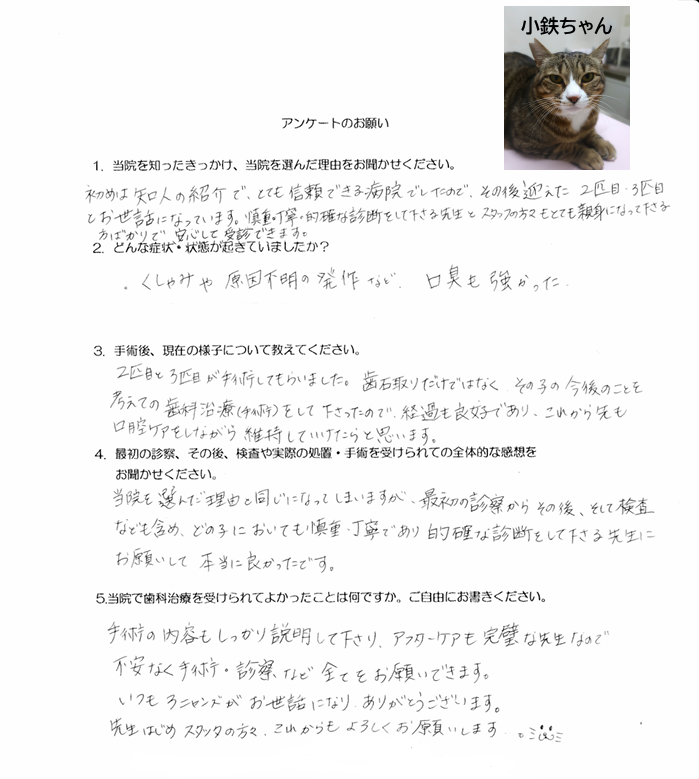 小鉄ちゃん
アンケートのお願い
1. 当院を知ったきっかけ、当院を選んだ理由をお聞かせください。
初めは知人の紹介で、とても信頼できる病院でしたので、その後迎えた2匹目・3匹目
とお世話になっています。慎重丁寧・的確な診断をして下さる先生とスタッフの方々もとても親身になって下さる
方ばかりで安心して受診できます。
2. どんな症状・状態が起きていましたか?
・くしゃみや原因不明の発作など、口臭も強かった.
3. 手術後、現在の様子について教えてください。
2匹目と3匹目が手術してもらいました。歯石取りだけではなく、その子の今後のことを
考えての歯科治療(手術)をして下さったので、経過も良好であり、これから先も
口腔ケアをしながら維持していけたらと思います。
4. 最初の診察、その後、検査や実際の処置・手術を受けられての全体的な感想を
お聞かせください。
当院を選んだ理由と同じになってしまいますが、最初の診察からその後、そして検査
なども含め、どの子においても慎重・丁寧であり的確な診断をして下さる先生に
お願いして本当に良かったです。
5.当院で歯科治療を受けられてよかったことは何ですか。ご自由にお書きください。
手術の内容もしっかり説明して下さり、アフターケアも完璧な先生なので
不安なく手術・診察など全てをお願いできます。
いつも3ニャンズがお世話になり、ありがとうございます。
先生はじめスタッフの方々、これからもよろしくお願いします